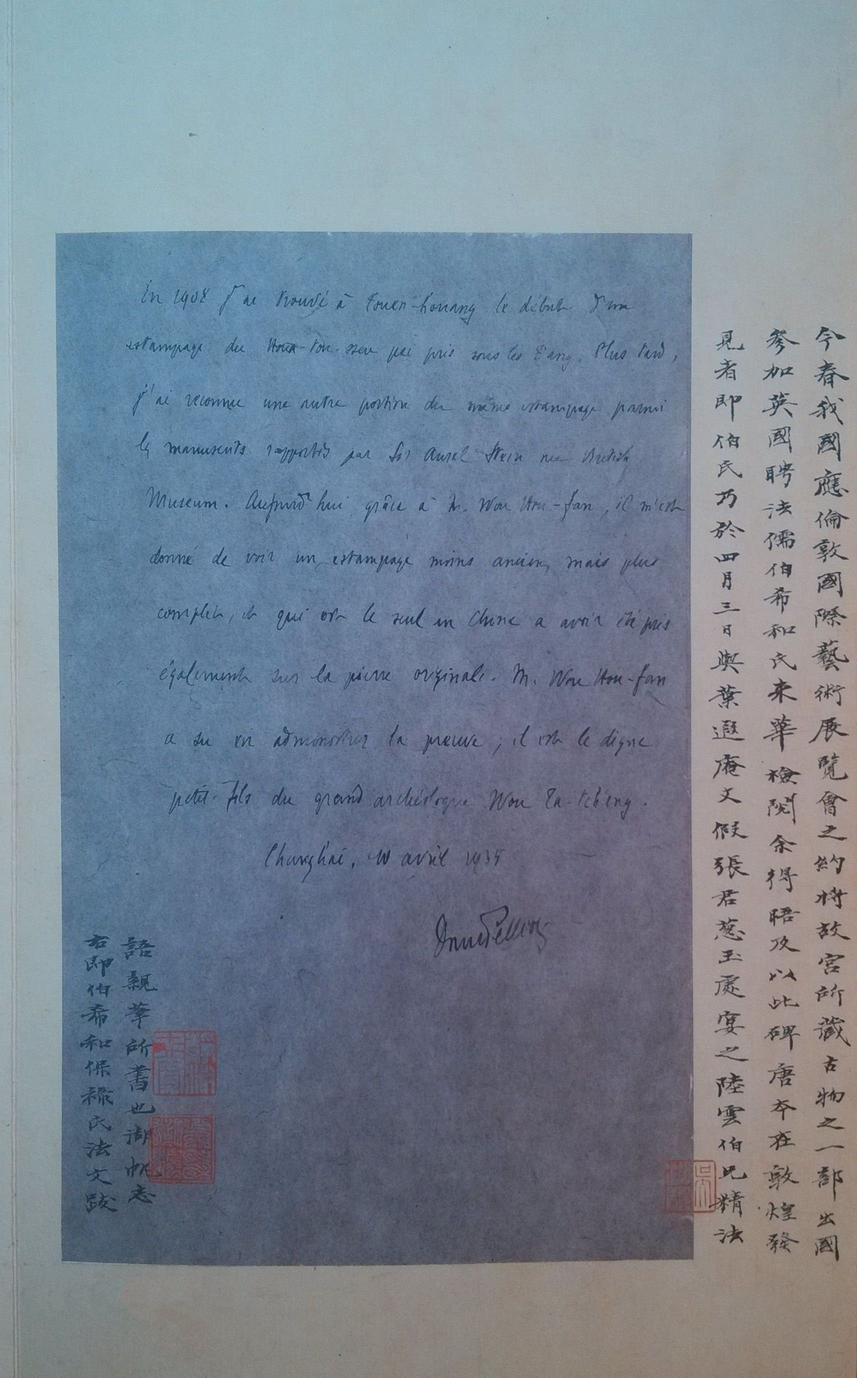 今春我國應倫敦國際藝術展覽會之約將故宮所藏古物之一部出國
參加英國聘法儒伯希和氏來華檢閱余得晤及以此碑唐本在敦煌發
見者即伯氏乃於四月三日與葉遐庵丈假張君蔥玉處宴之陸雲伯兄精法
En 1908 j'ai trouvé à Touen-houang le début d'un
estampage du Houa-tou-sseu pei pris sous les T'ang. Plus tard,
j'ai reconnu une autre portion du même estampage parmi
les manuscrits rapportés par Sir Aurel Stein au British
Museum. Aujourd'hui grâce à M. Wou Hou-fan, il m'est
donné de voir un estampage moins ancien, mais plus
complet, et qui est le seul en Chine a avoir été pris
également sur la pierre originale. M. Wou Hou-fan
a su en administrer la preuve ; il est le digne
petit-fils du grand archéologue Wou Ta-tch'eng.
Changhai, avril 1935
Paul Pelliot
右即伯希和保祿氏法文跋
語親筆所書也湖帆志